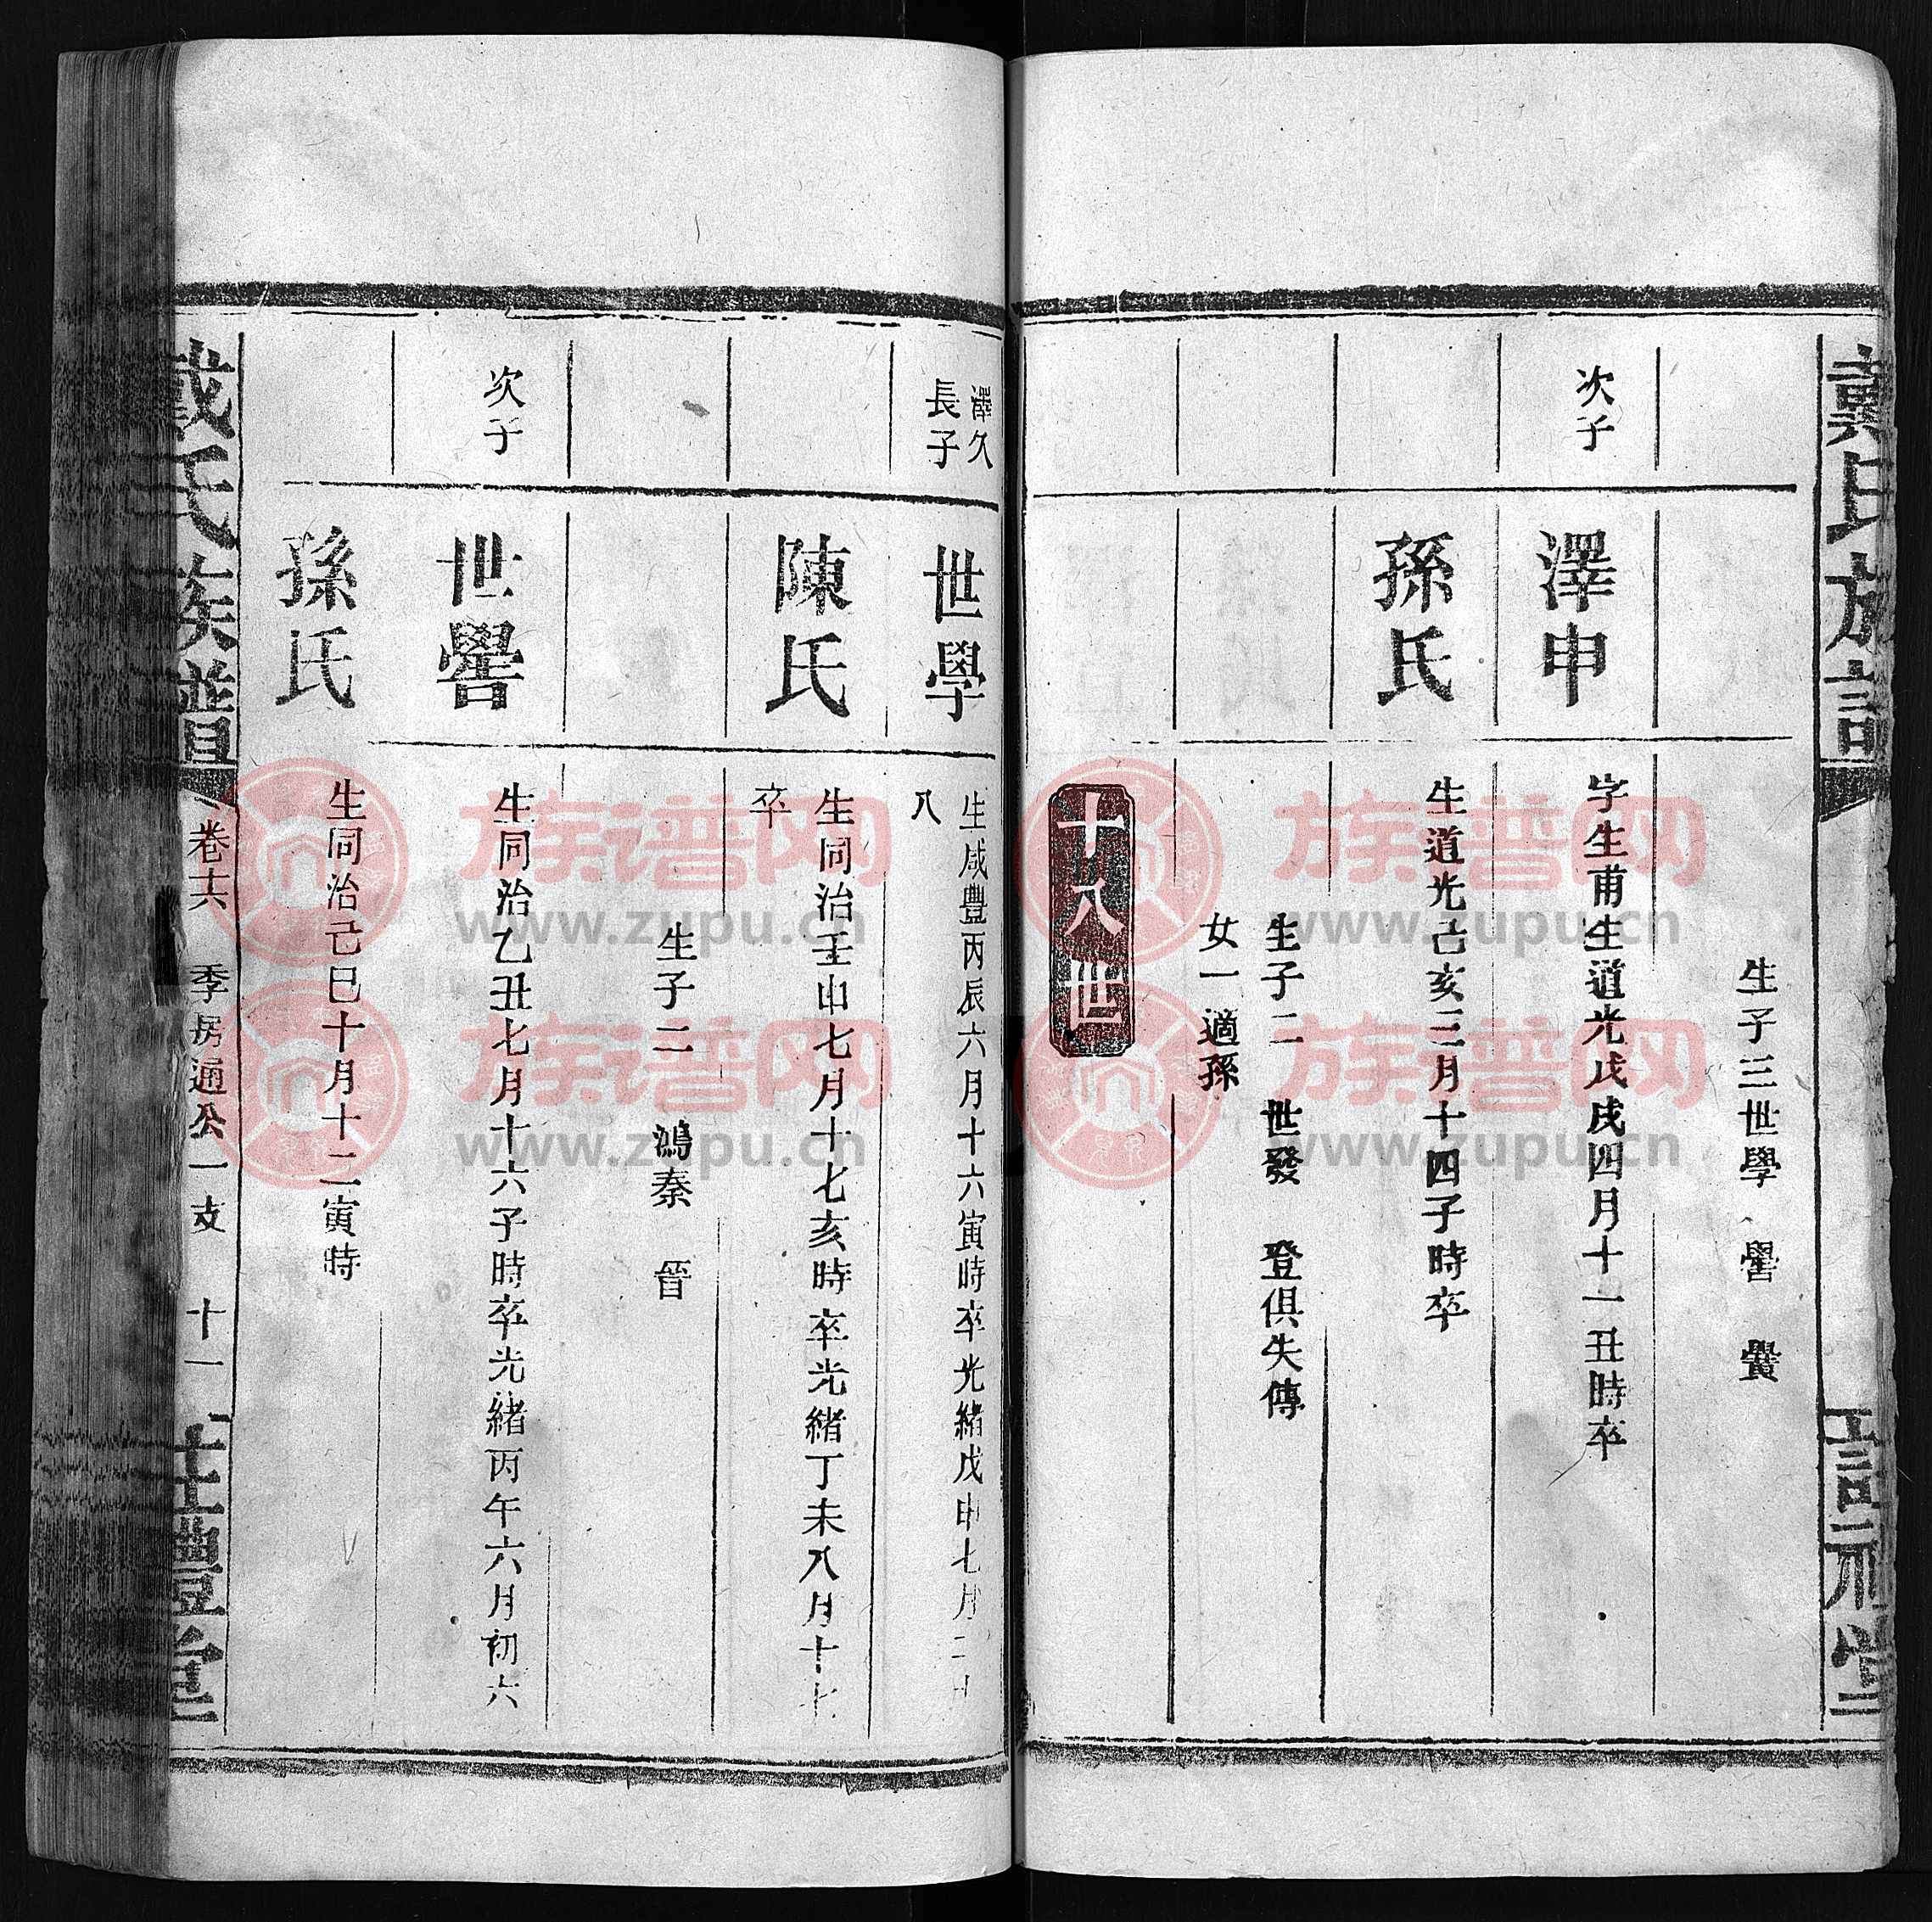 戴氏族譜
生子三世學 㽦 黌
次子
澤申
字生甫生道光戊戌四月十一丑時卒
孫氏
生道光己亥三月十四子時卒
生子二 世發 登俱失傳
女一適孫
十八世
澤久
長子
世學
生咸豐丙辰六月十六寅時卒光緒戊申七月二十
八
陳氏
生同治壬申七月十七亥時卒光緒丁未八月十七
卒
生子二 鴻泰 晉
次子
世嚳
生同治乙丑七月十六子時卒光緒丙午六月初六
孫氏
生同治己巳十月十二寅時
戴氏族譜
卷十六 季房通公一支 十一
註禮堂
族谱网
www.zupu.cn
族谱网
www.zupu.cn
族谱网
www.zupu.cn
族谱网
www.zupu.cn